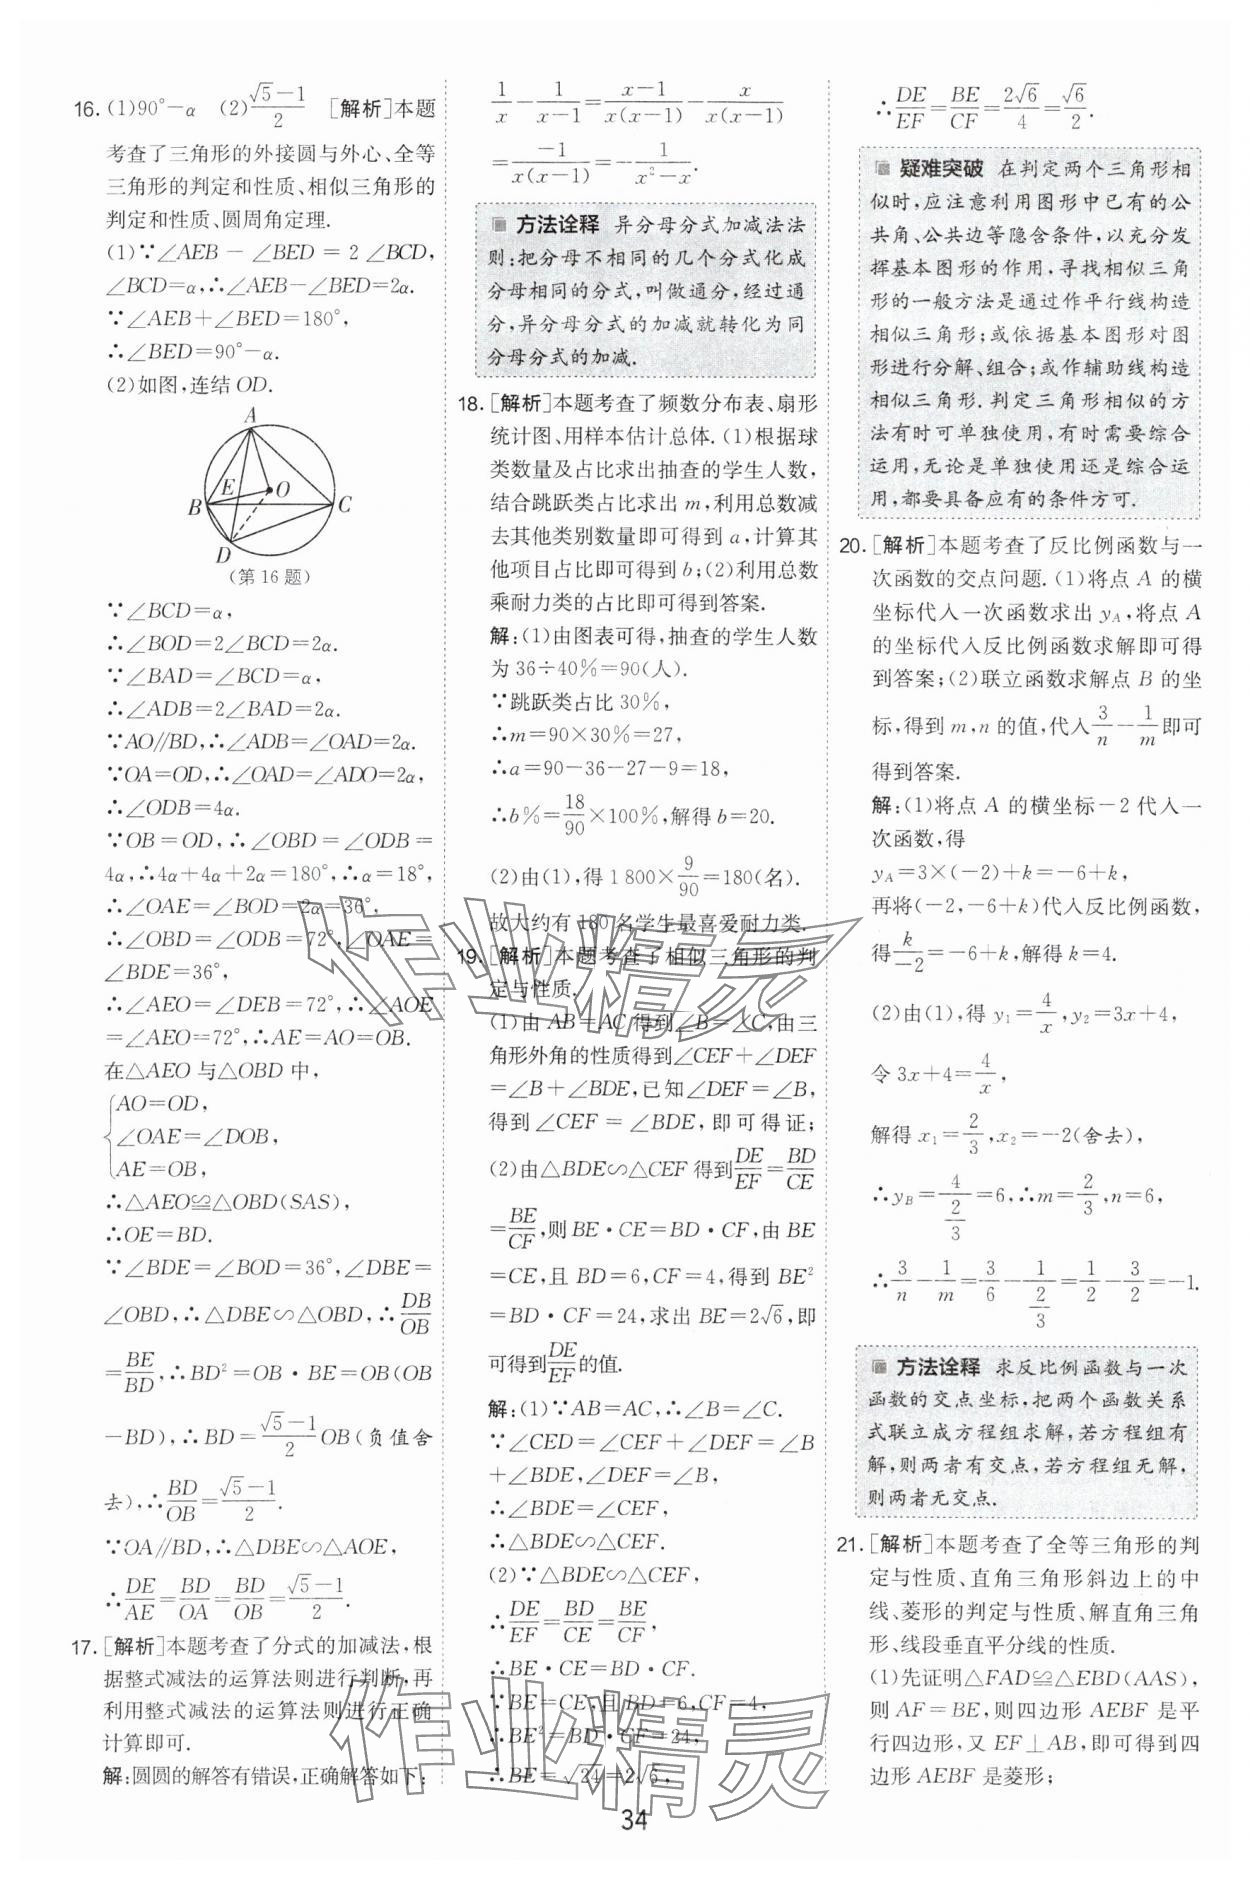 16. (1)90°－α　(2)(√5－1)/2　[解析]本题
考查了三角形的外接圆与外心、全等
三角形的判定和性质、相似三角形的
判定和性质、圆周角定理.
(1)∵∠AEB－∠BED＝2∠BCD,
∠BCD＝α,∴∠AEB－∠BED＝2α.
∵∠AEB＋∠BED＝180°,
∴∠BED＝90°－α.
(2)如图,连结OD.
A
B
E
O
C
D
(第16题)
∵∠BCD＝α,
∴∠BOD＝2∠BCD＝2α.
∵∠BAD＝∠BCD＝α,
∴∠ADB＝2∠BAD＝2α.
∵AO∥BD,∴∠ADB＝∠OAD＝2α.
∵OA＝OD,∴∠OAD＝∠ADO＝2α,
∴∠ODB＝4α.
∵OB＝OD,∴∠OBD＝∠ODB＝
4α,∴4α＋4α＋2α＝180°,∴α＝18°,
∴∠OAE＝∠BOD＝2α＝36°,
∴∠OBD＝∠ODB＝72°,∠OAE＝
∠BDE＝36°,
∴∠AEO＝∠DEB＝72°,∴∠AOE
＝∠AEO＝72°,∴AE＝AO＝OB.
在△AEO与△OBD中,
{AO＝OD,
∠OAE＝∠DOB,
AE＝OB,
∴△AEO≌△OBD(SAS),
∴OE＝BD.
∵∠BDE＝∠BOD＝36°,∠DBE＝
∠OBD,∴△DBE∽△OBD,∴DB/OB
＝BE/BD,∴BD²＝OB·BE＝OB(OB
－BD),∴BD＝(√5－1)/2 OB(负值舍
去),∴BD/OB＝(√5－1)/2.
∵OA∥BD,∴△DBE∽△AOE,
∴DE/AE＝BD/OA＝BD/OB＝(√5－1)/2.
17. [解析]本题考查了分式的加减法,根
据整式减法的运算法则进行判断,再
利用整式减法的运算法则进行正确
计算即可.
解:圆圆的解答有错误,正确解答如下:
1/x－1/(x－1)＝(x－1)/(x(x－1))－x/(x(x－1))
＝－1/(x(x－1))＝－1/(x²－x).
方法诠释　异分母分式加减法法
则:把分母不相同的几个分式化成
分母相同的分式,叫做通分,经过通
分,异分母分式的加减就转化为同
分母分式的加减.
18. [解析]本题考查了频数分布表、扇形
统计图、用样本估计总体.(1)根据球
类数量及占比求出抽查的学生人数,
结合跳跃类占比求出m,利用总数减
去其他类别数量即可得到a,计算其
他项目占比即可得到b;(2)利用总数
乘耐力类的占比即可得到答案.
解:(1)由图表可得,抽查的学生人数
为36÷40%＝90(人).
∵跳跃类占比30%,
∴m＝90×30%＝27,
∴a＝90－36－27－9＝18,
∴b%＝18/90×100%,解得b＝20.
(2)由(1),得1 800×9/90＝180(名).
故大约有180名学生最喜爱耐力类.
19. [解析]本题考查了相似三角形的判
定与性质.
(1)由AB＝AC得到∠B＝∠C,由三
角形外角的性质得到∠CEF＋∠DEF
＝∠B＋∠BDE,已知∠DEF＝∠B,
得到∠CEF＝∠BDE,即可得证;
(2)由△BDE∽△CEF得到DE/EF＝BD/CE
＝BE/CF,则BE·CE＝BD·CF,由BE
＝CE,且BD＝6,CF＝4,得到BE²
＝BD·CF＝24,求出BE＝2√6,即
可得到DE/EF的值.
解:(1)∵AB＝AC,∴∠B＝∠C.
∵∠CED＝∠CEF＋∠DEF＝∠B
＋∠BDE,∠DEF＝∠B,
∴∠BDE＝∠CEF,
∴△BDE∽△CEF.
(2)∵△BDE∽△CEF,
∴DE/EF＝BD/CE＝BE/CF,
∴BE·CE＝BD·CF.
∵BE＝CE,且BD＝6,CF＝4,
∴BE²＝BD·CF＝24,
∴BE＝√24＝2√6,
∴DE/EF＝BE/CF＝2√6/4＝√6/2.
疑难突破　在判定两个三角形相
似时,应注意利用图形中已有的公
共角、公共边等隐含条件,以充分发
挥基本图形的作用,寻找相似三角
形的一般方法是通过作平行线构造
相似三角形;或依据基本图形对图
形进行分解、组合;或作辅助线构造
相似三角形.判定三角形相似的方
法有时可单独使用,有时需要综合
运用,无论是单独使用还是综合运
用,都要具备应有的条件方可.
20. [解析]本题考查了反比例函数与一
次函数的交点问题.(1)将点A的横
坐标代入一次函数求出y_A,将点A
的坐标代入反比例函数求解即可得
到答案;(2)联立函数求解点B的坐
标,得到m,n的值,代入3/n－1/m即可
得到答案.
解:(1)将点A的横坐标－2代入一
次函数,得
y_A＝3×(－2)＋k＝－6＋k,
再将(－2,－6＋k)代入反比例函数,
得k/－2＝－6＋k,解得k＝4.
(2)由(1),得y₁＝4/x,y₂＝3x＋4,
令3x＋4＝4/x,
解得x₁＝2/3,x₂＝－2(舍去),
∴y_B＝4/(2/3)＝6,∴m＝2/3,n＝6,
∴3/n－1/m＝3/6－1/(2/3)＝1/2－3/2＝－1.
方法诠释　求反比例函数与一次
函数的交点坐标,把两个函数关系
式联立成方程组求解,若方程组有
解,则两者有交点,若方程组无解,
则两者无交点.
21. [解析]本题考查了全等三角形的判
定与性质、直角三角形斜边上的中
线、菱形的判定与性质、解直角三角
形、线段垂直平分线的性质.
(1)先证明△FAD≌△EBD(AAS),
则AF＝BE,则四边形AEBF是平
行四边形,又EF⊥AB,即可得到四
边形AEBF是菱形;
34
作业精灵
作业精灵